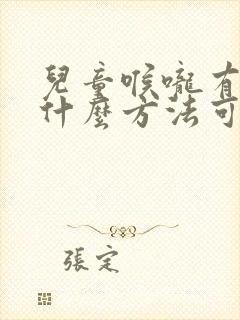 兒童喉嚨有
什麼方法可
張定